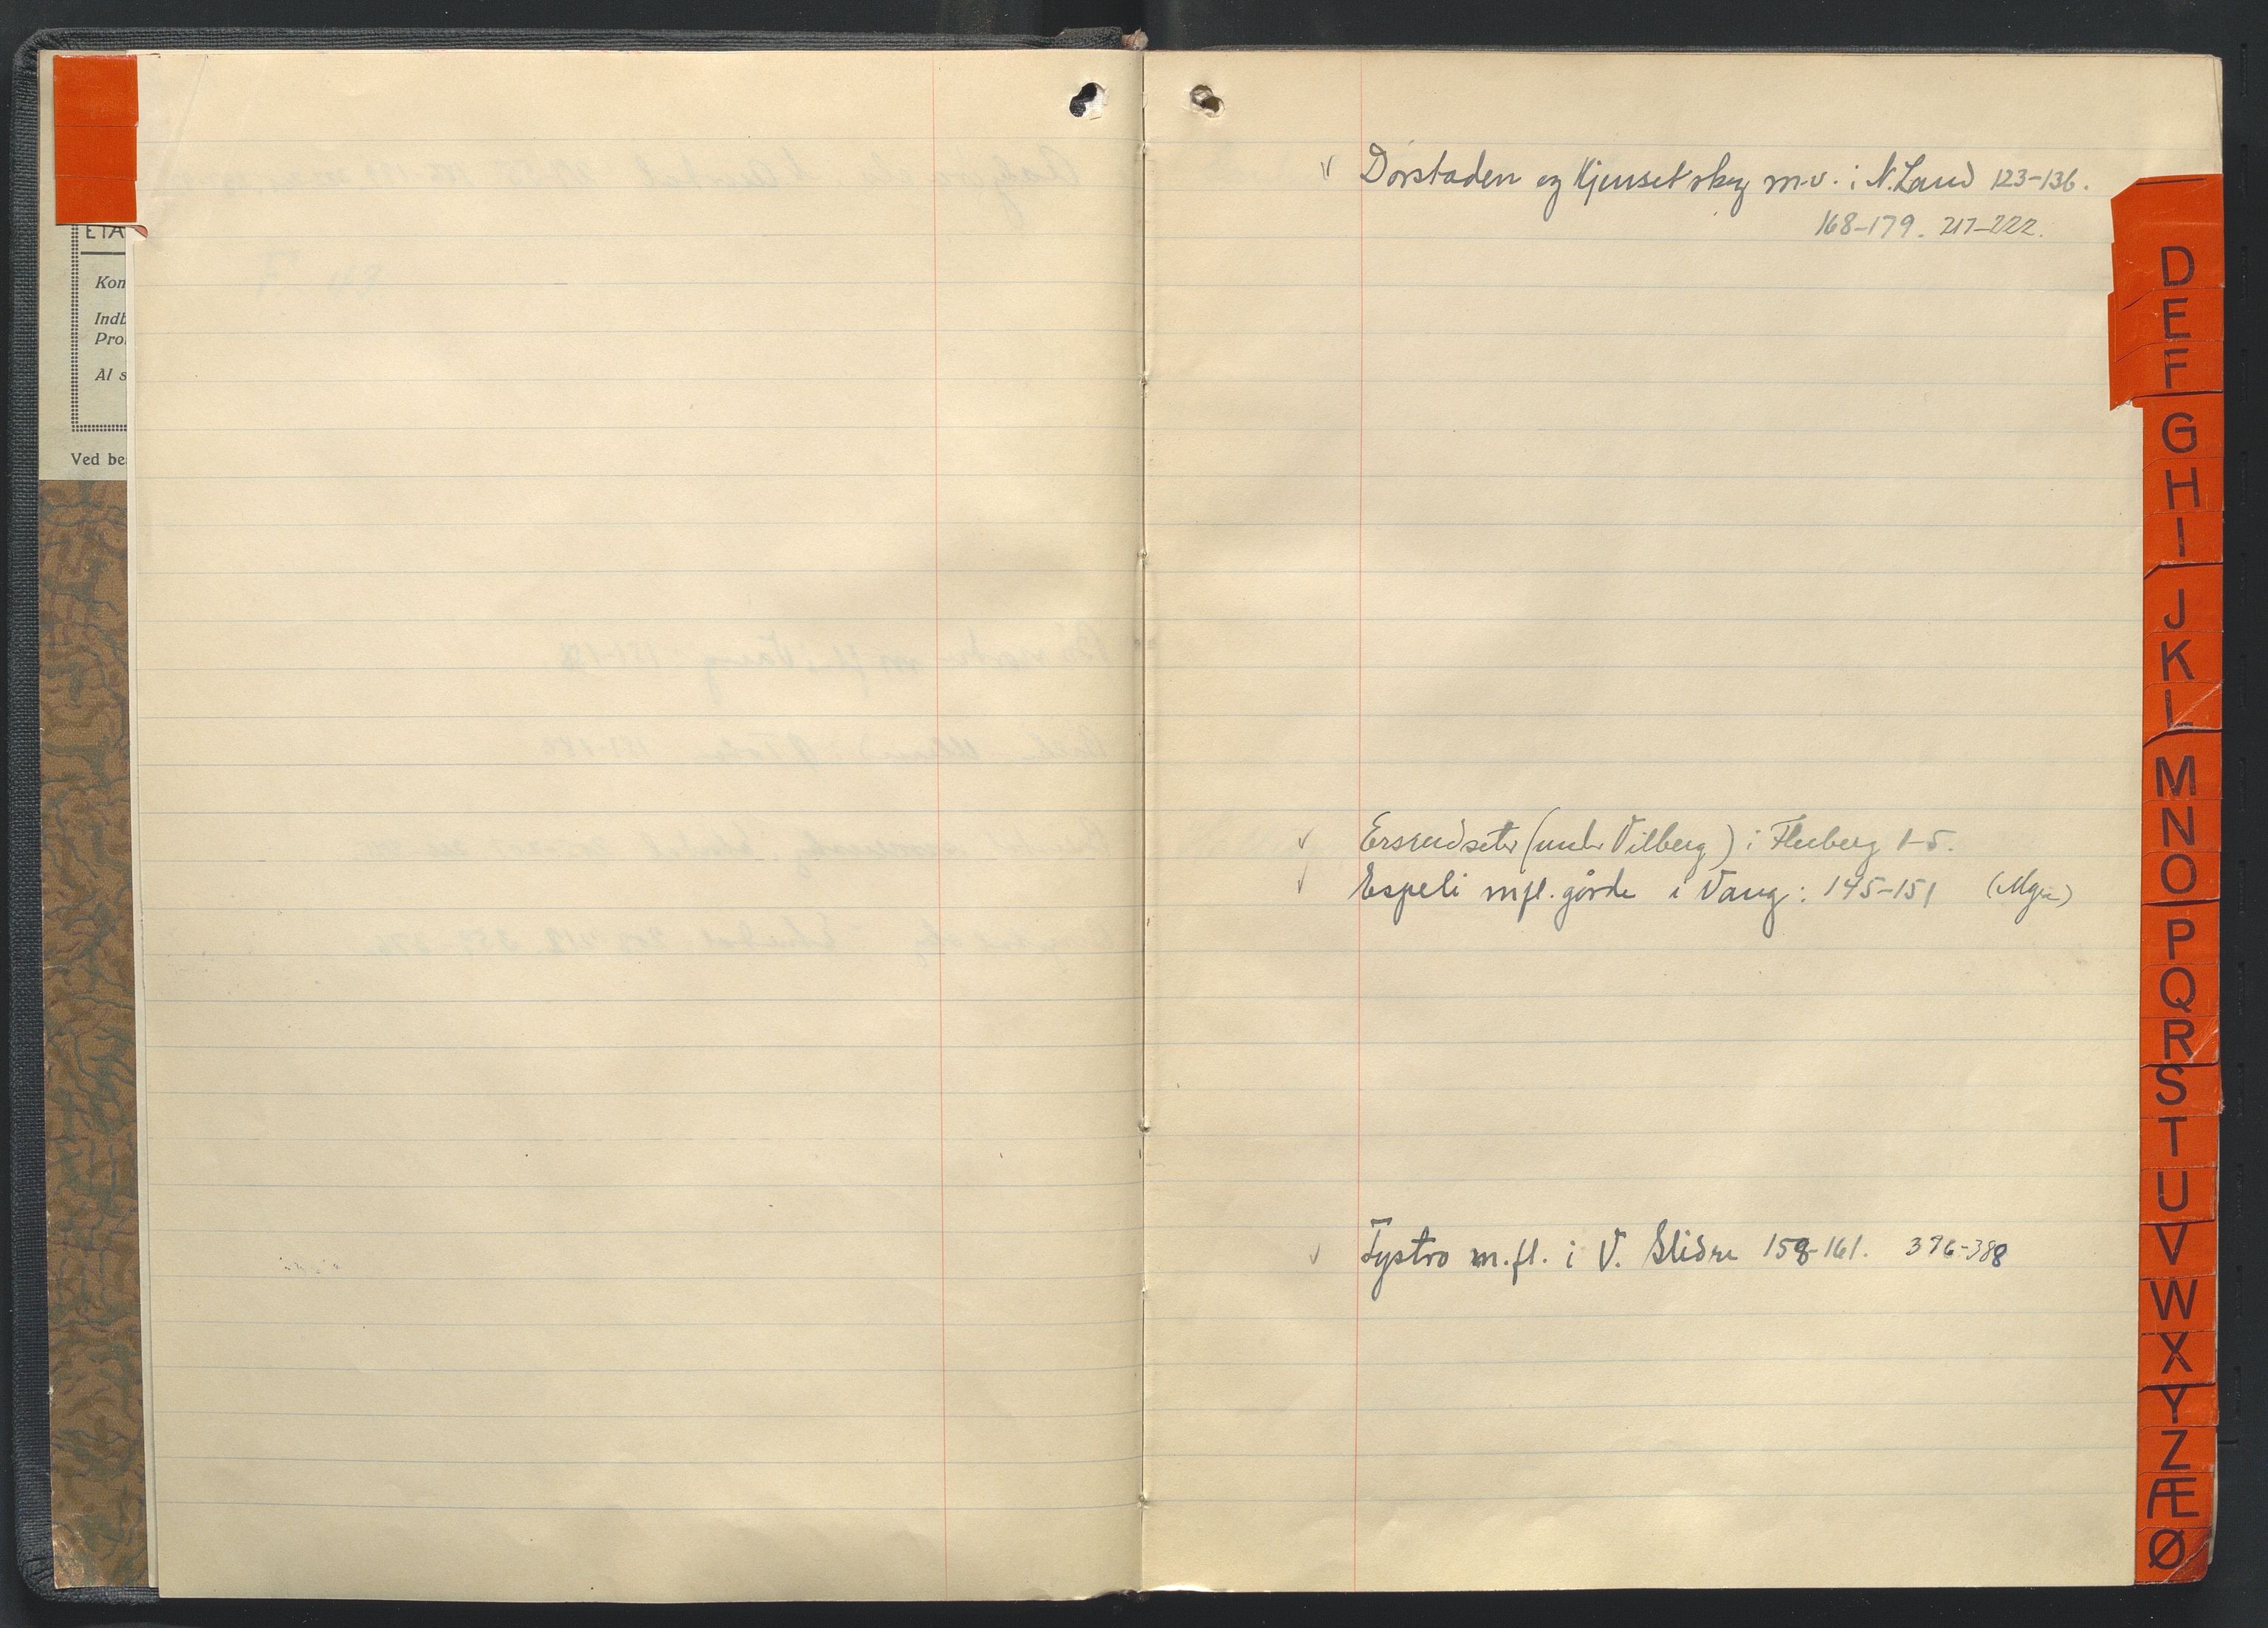 ETA
Kon
Indb
Pro
Al s
Ved be
Dørstaden og Kjensetskog m.v. i N. Land 123-136.
168-179. 217-222.
Ersrudseter (under Vilberg) i Fluberg 1-5.
Espeli mfl. gårde i Vang: 145-151
Fystro m.fl. i V. Slidre 158-161. 376-388
D
E
F
G
H
I
J
K
L
M
N
O
P
Q
R
S
T
U
V
W
X
Y
Z
Æ
Ø